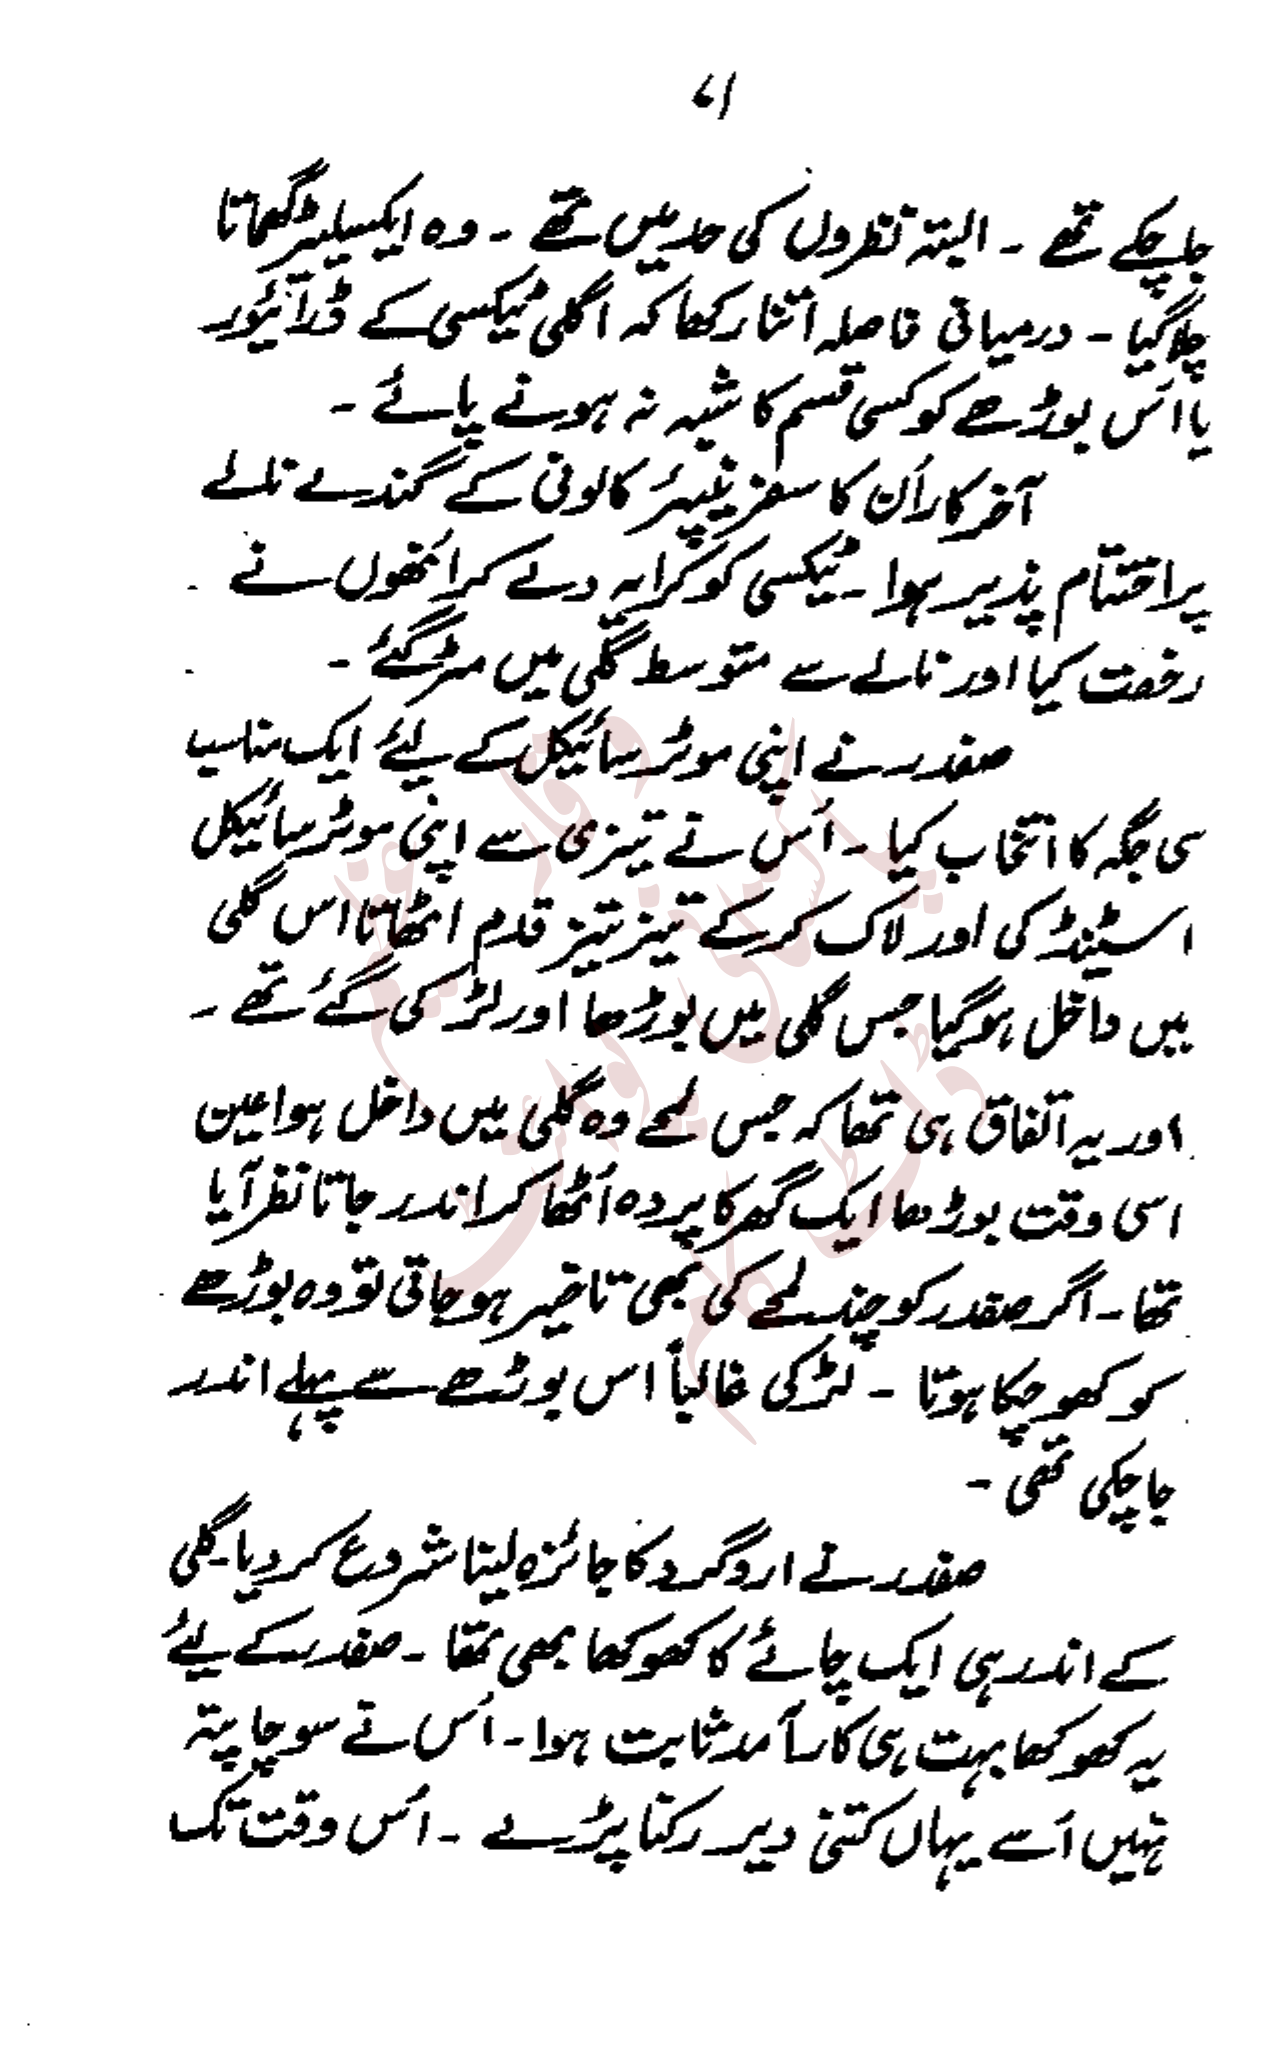 ۷۱
جا چکے تھے ۔ البتہ نظروں کی حد میں تھے ۔ وہ ایکسیلیٹر گھماتا
چلا گیا ۔ درمیانی فاصلہ اتنا رکھا کہ اگلی ٹیکسی کے ڈرائیور
یا اُس بوڑھے کو کسی قسم کا شبہ نہ ہونے پائے ۔
آخر کار اُن کا سفر نیپئر کالونی کے گندے نالے
پر اختتام پذیر ہوا ۔ ٹیکسی کو کرایہ دے کر اُنھوں نے
رخصت کیا اور نالے سے متوسط گلی میں مڑ گئے ۔
صفدر نے اپنی موٹر سائیکل کے لیئے ایک مناسب
سی جگہ کا انتخاب کیا ۔ اُس نے تیزی سے اپنی موٹر سائیکل
اسٹینڈ کی اور لاک کر کے تیز تیز قدم اٹھاتا اس گلی
میں داخل ہو گیا جس گلی میں بوڑھا اور لڑکی گئے تھے ۔
اور یہ اتفاق ہی تھا کہ جس لمحے وہ گلی میں داخل ہوا عین
اسی وقت بوڑھا ایک گھر کا پردہ اُٹھا کر اندر جاتا نظر آیا
تھا ۔ اگر صفدر کو چند لمحے کی بھی تاخیر ہو جاتی تو وہ بوڑھے
کو کھو چکا ہوتا ۔ لڑکی غالباً اس بوڑھے سے پہلے اندر
جا چکی تھی ۔
صفدر نے اردگرد کا جائزہ لینا شروع کر دیا ۔ گلی
کے اندر ہی ایک چائے کا کھوکھا بھی تھا ۔ صفدر کے لیئے
یہ کھوکھا بہت ہی کارآمد ثابت ہوا ۔ اُس نے سوچا پتہ
نہیں اُسے یہاں کتنی دیر رکنا پڑے ۔ اُس وقت تک